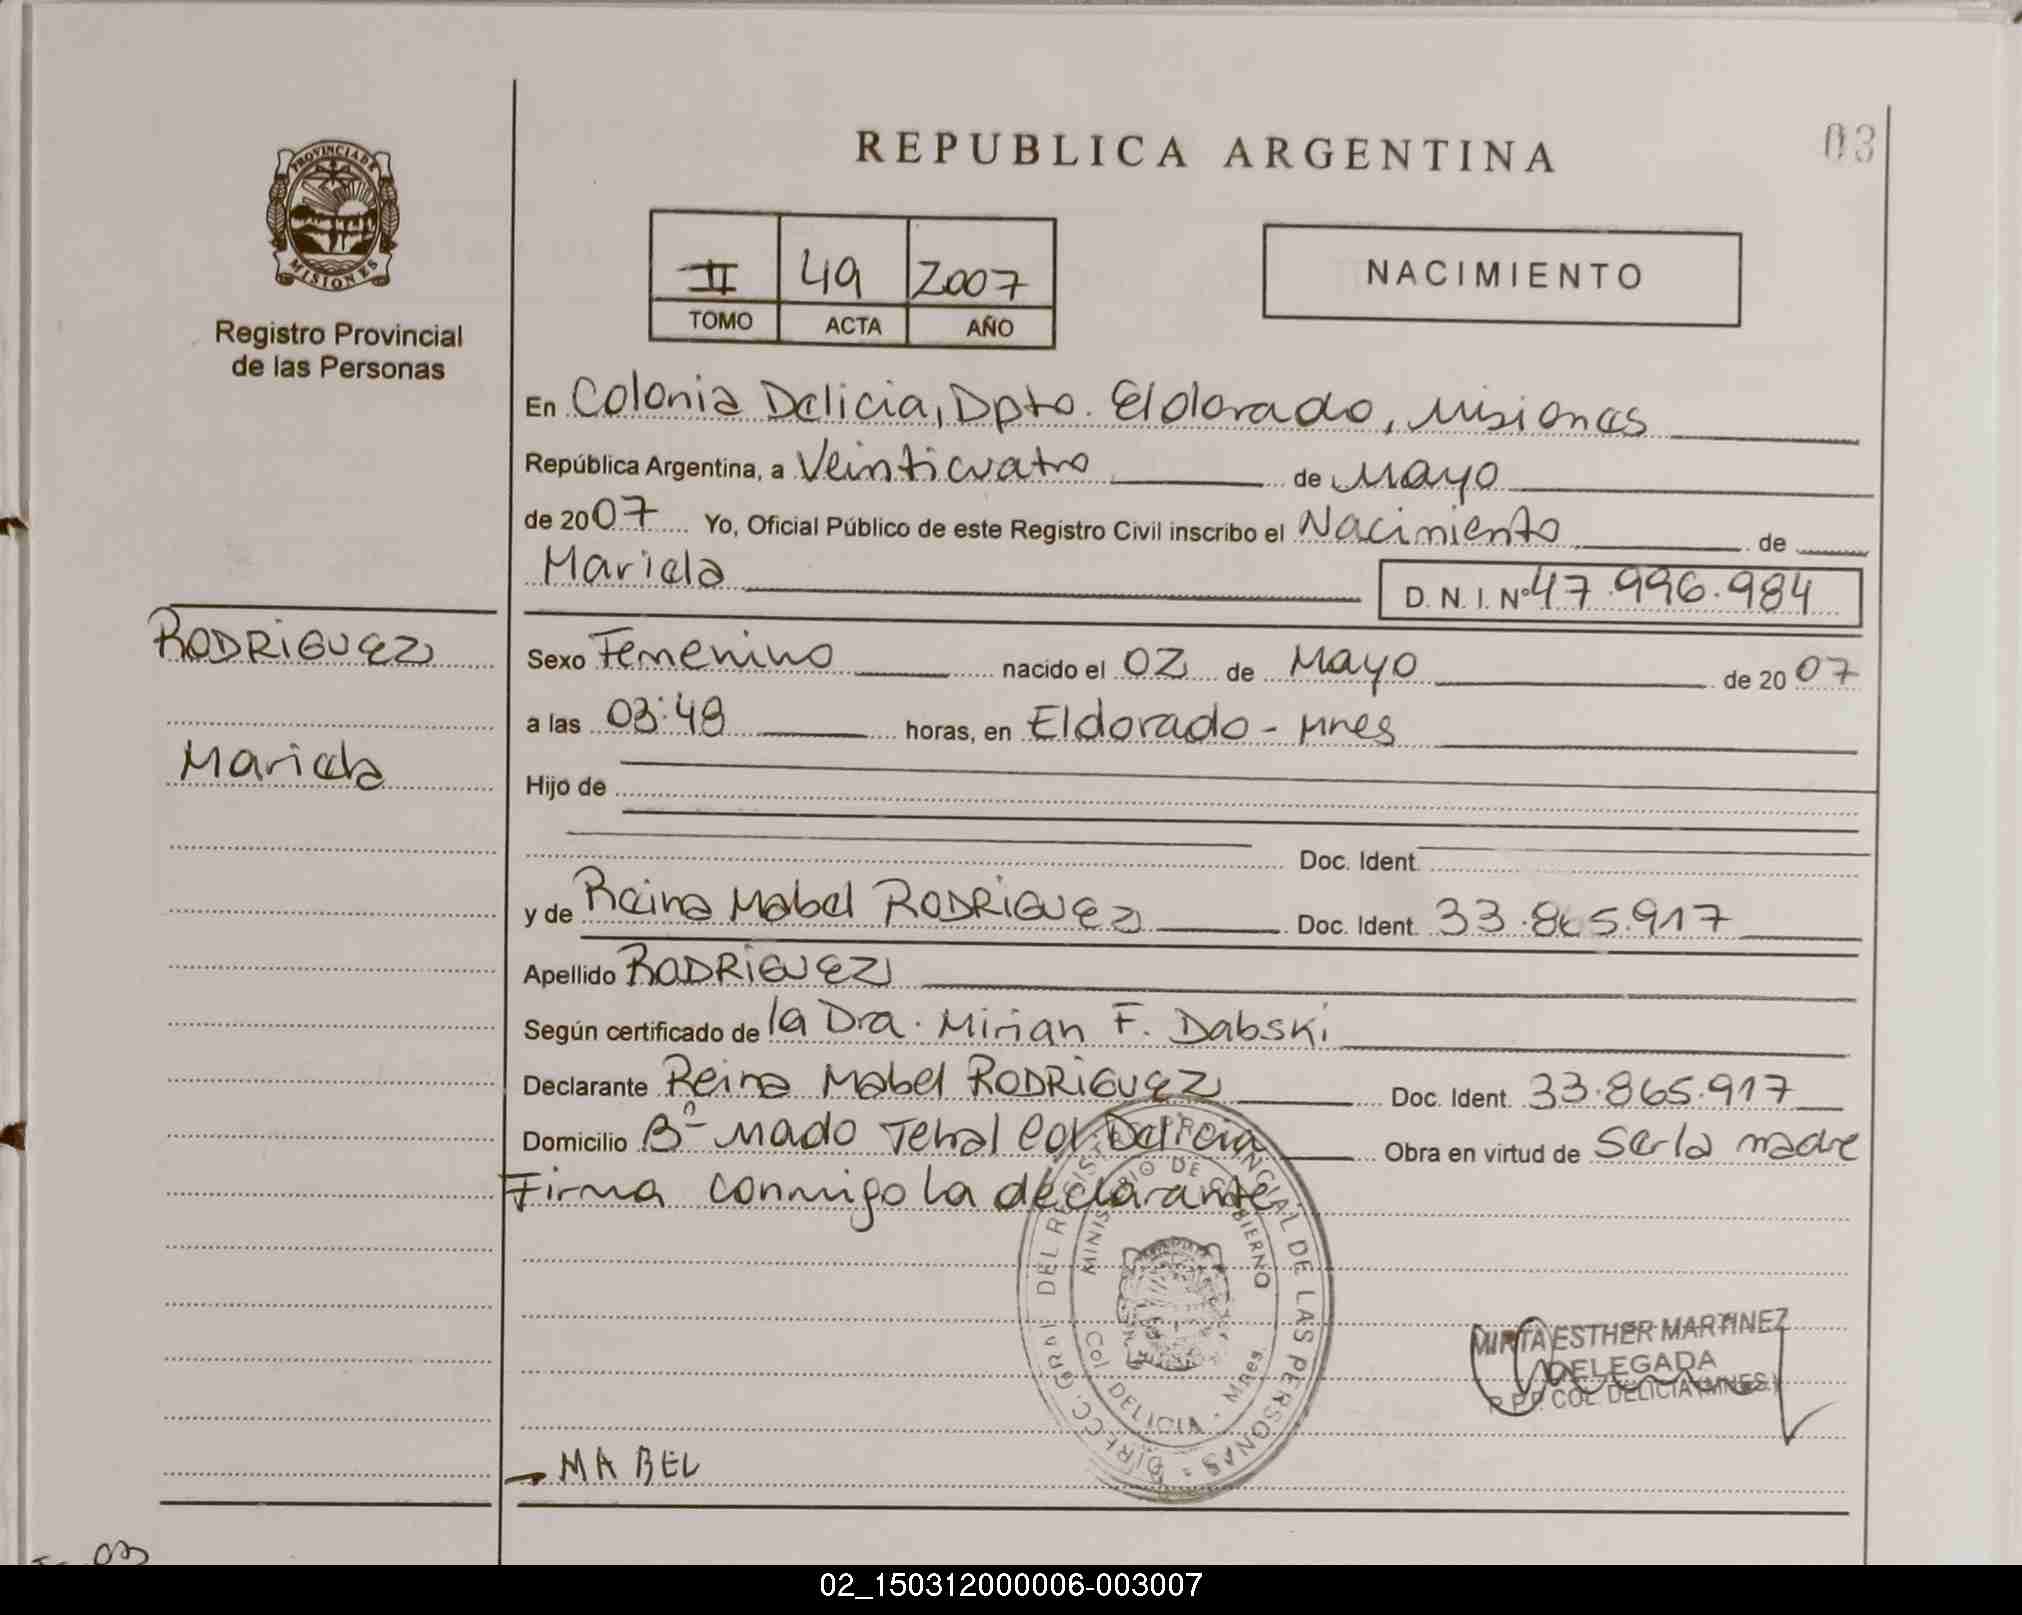 REPUBLICA ARGENTINA
03
PROVINCIA DE
MISIONES
Registro Provincial
de las Personas
II 49 2007
TOMO ACTA AÑO
NACIMIENTO
En Colonia Delicia, Dpto. Eldorado, Misiones
República Argentina, a Veinticuatro de Mayo
de 2007 Yo, Oficial Público de este Registro Civil inscribo el Nacimiento de
Mariela
D. N. I. Nº 47.996.984
RODRIGUEZ
Mariela
Sexo Femenino nacido el 02 de Mayo de 2007
a las 03:48 horas, en Eldorado - Mnes
Hijo de
Doc. Ident.
y de Reina Mabel RODRIGUEZ Doc. Ident. 33.865.917
Apellido RODRIGUEZ
Según certificado de la Dra. Mirian F. Dabski
Declarante Reina Mabel RODRIGUEZ Doc. Ident. 33.865.917
Domicilio Bº Mado Col Delicia Obra en virtud de Ser la madre
Firma conmigo la declarante
DIRECC. GRAL DEL REGISTRO PROVINCIAL DE LAS PERSONAS
MINISTERIO DE GOBIERNO
Col DELICIA - Mnes.
MIRTA ESTHER MARTINEZ
DELEGADA
R.P.P. COL. DELICIA (MNES.)
MABEL
02_150312000006-003007